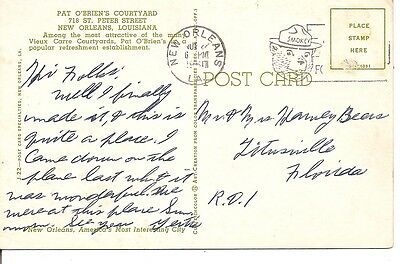 PAT O'BRIEN'S COURTYARD
718 ST. PETER STREET
NEW ORLEANS, LOUISIANA
Among the most attractive of the many
Vieux Carre Courtyards, Pat O'Brien's
popular refreshment establishment.
Hi Folks:
Well I finally
made it, & this is
quite a place. I
Came down on the
plane last night it
was wonderful. We
were at this place Sun
morn. See you
New Orleans, America's Most Interesting City
POST CARD SPECIALTIES, NEW ORLEANS, LA.
NEW ORLEANS
LA
PM
SMOKEY
PLACE
STAMP
HERE
POST CARD
Mr & Mrs Harvey Bears
Titusville
Florida
R.D. 1